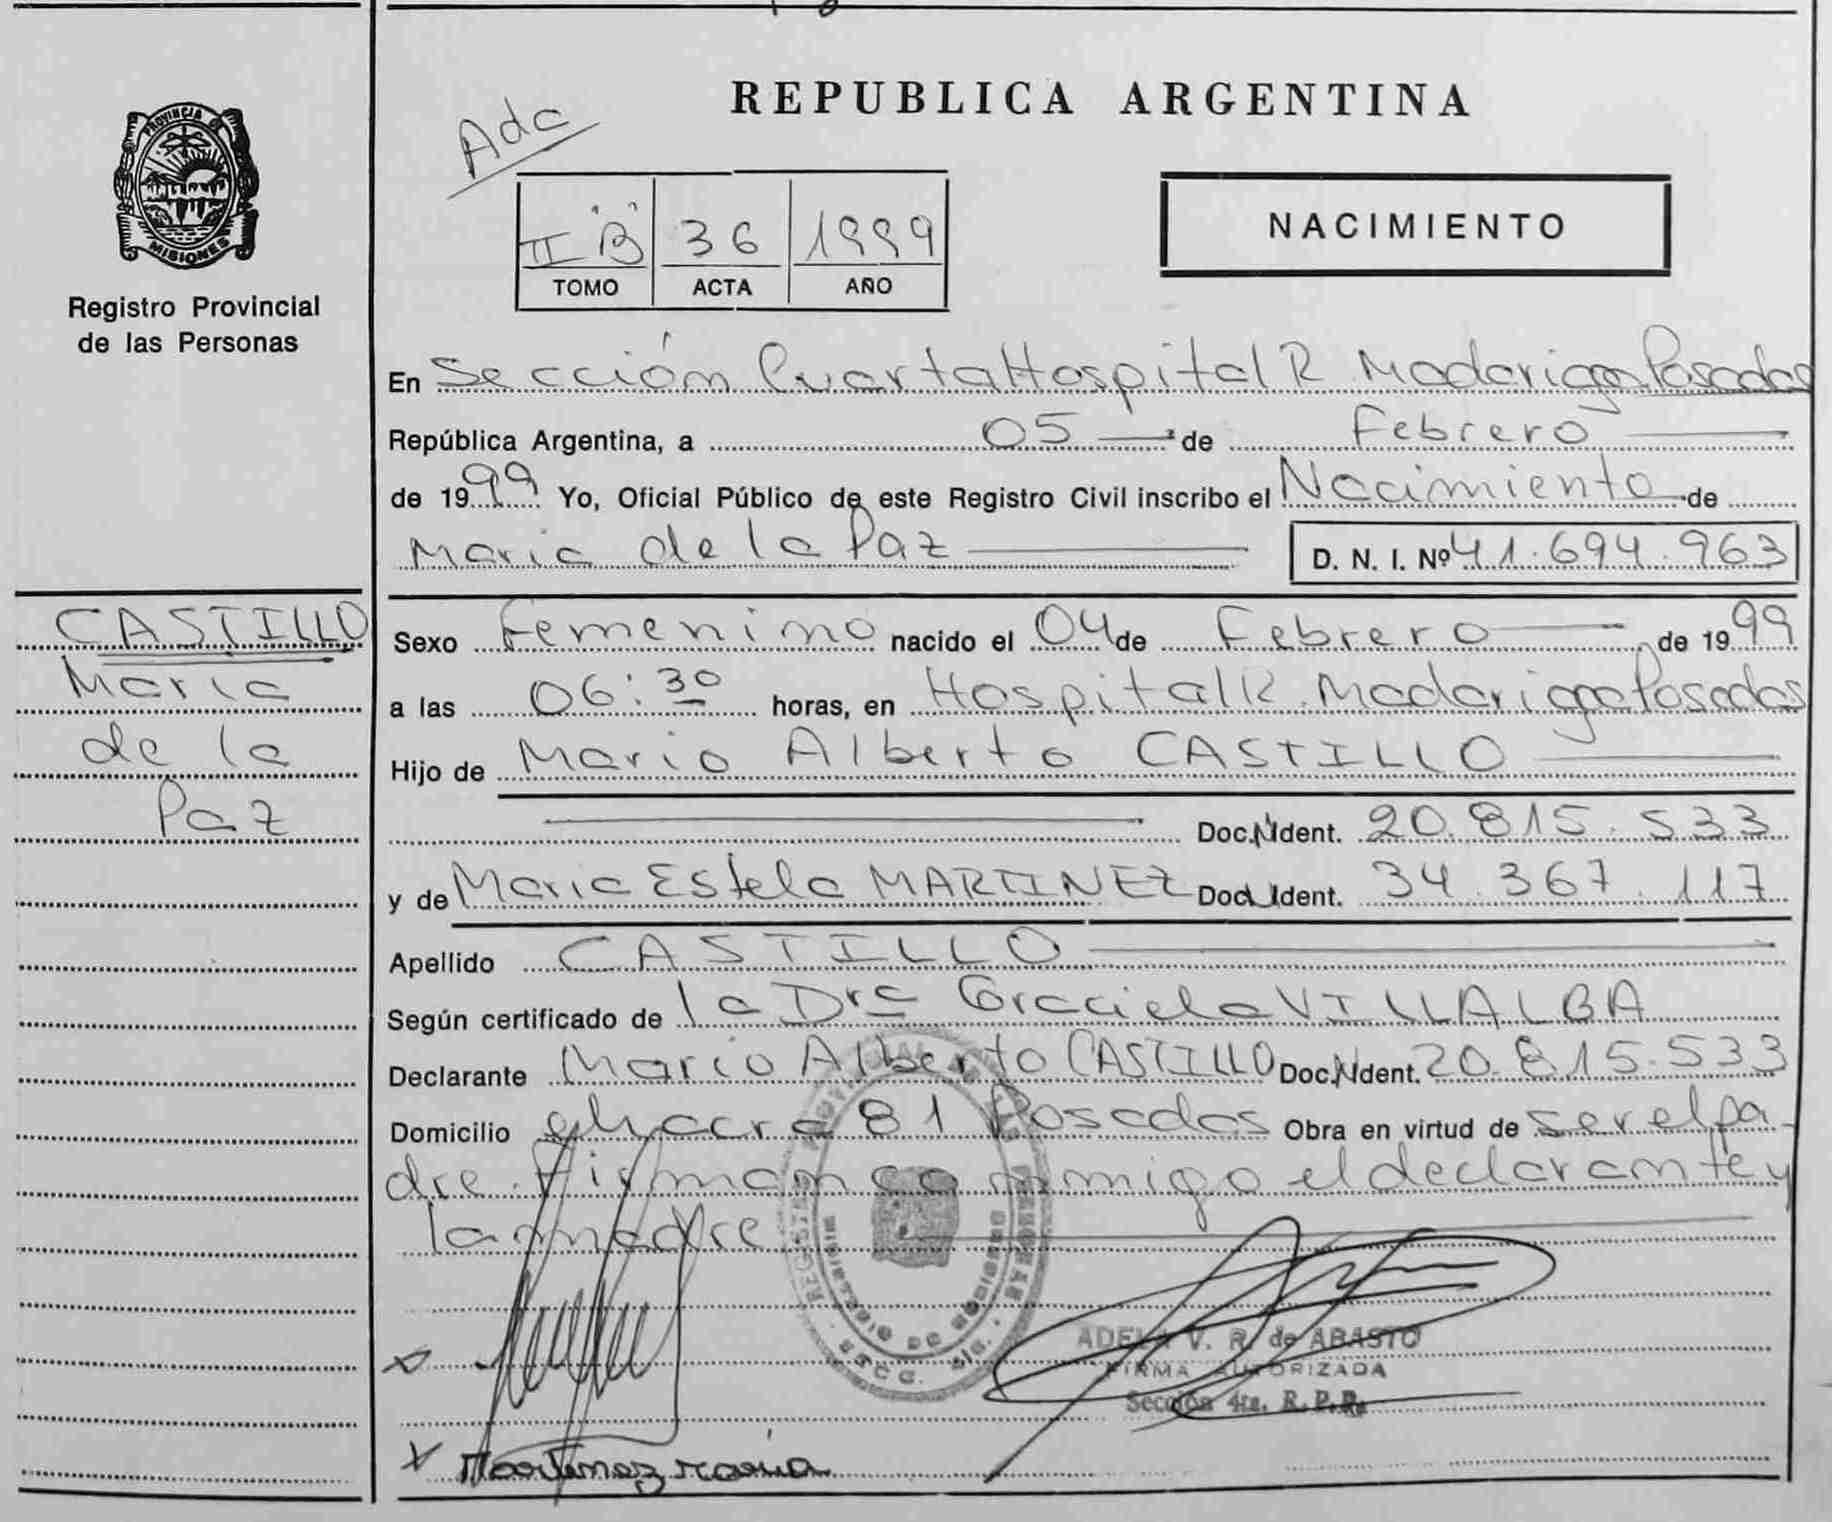 REPUBLICA ARGENTINA
Adc
PROVINCIA DE
MISIONES
Registro Provincial
de las Personas
II "B" 36 1999
TOMO ACTA AÑO
NACIMIENTO
En Sección Cuarta Hospital R. Madariaga Posadas
República Argentina, a 05 de Febrero
de 1999 Yo, Oficial Público de este Registro Civil inscribo el Nacimiento de
Maria de la Paz D. N. I. Nº 41.694.963
CASTILLO
Maria
de la
Paz
Sexo Femenino nacido el 04 de Febrero de 1999
a las 06:30 horas, en Hospital R. Madariaga Posadas
Hijo de Mario Alberto CASTILLO
Doc. Ident. 20.815.533
y de Maria Estela MARTINEZ Doc. Ident. 34.367.117
Apellido CASTILLO
Según certificado de la Dra Graciela VILLALBA
Declarante Mario Alberto CASTILLO Doc. Ident. 20.815.533
Domicilio chacra 81 Posadas Obra en virtud de ser el pa-
dre. Firman conmigo el declarante y
la madre
ADELA V. R. de ABASTO
FIRMA AUTORIZADA
Sección 4ta. R. P. P.
x
x Martinez maria